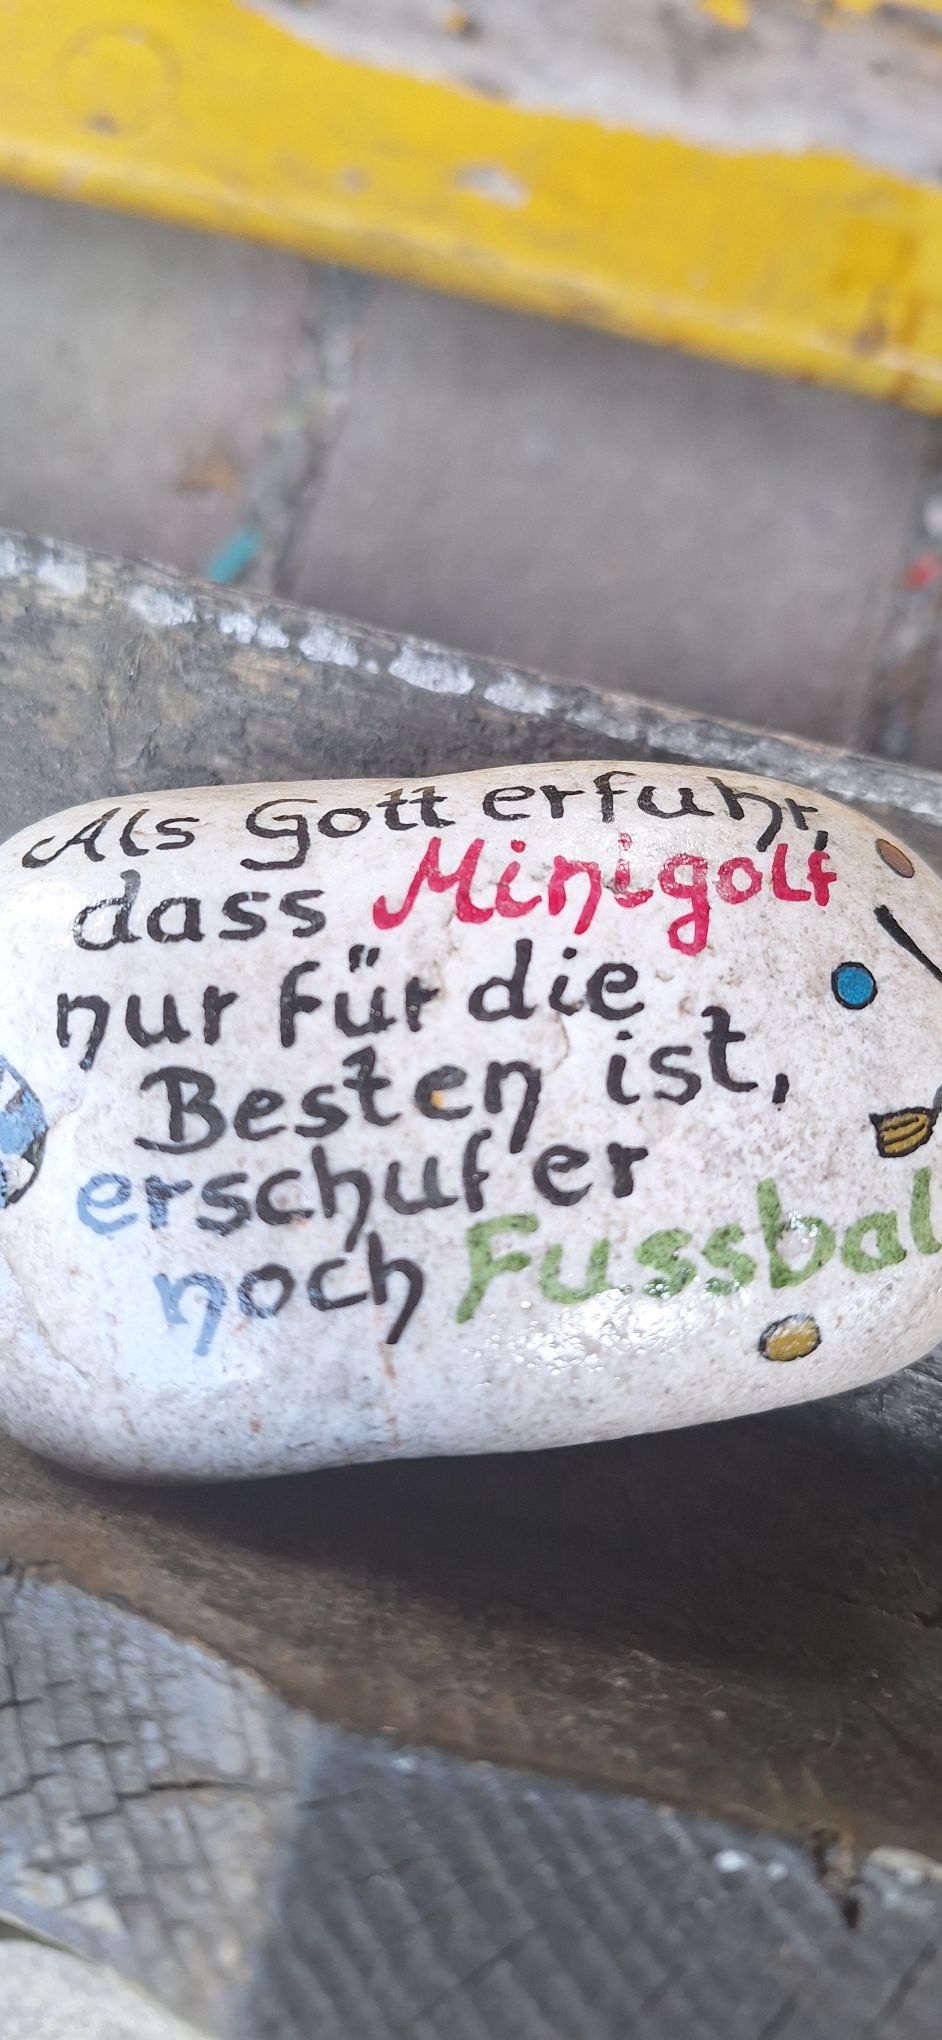 Als Gott erfuhr,
dass Minigolf
nur für die
Besten ist,
erschuf er
noch Fussbal